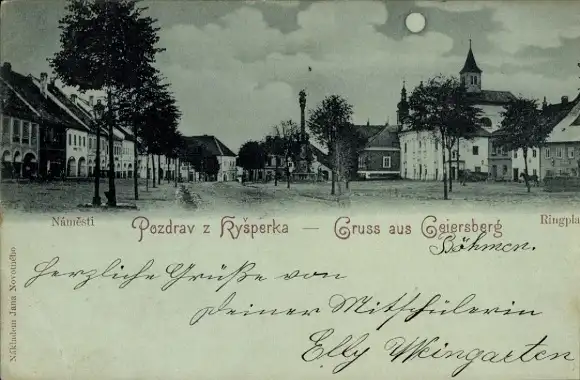 Náměstí
Ringpla
Pozdrav z Kyšperka — Gruss aus Geiersberg
Böhmen.
Herzliche Grüße von
Deiner Mitschülerin
Elly Weingarten
Nákladem Jana Novotného